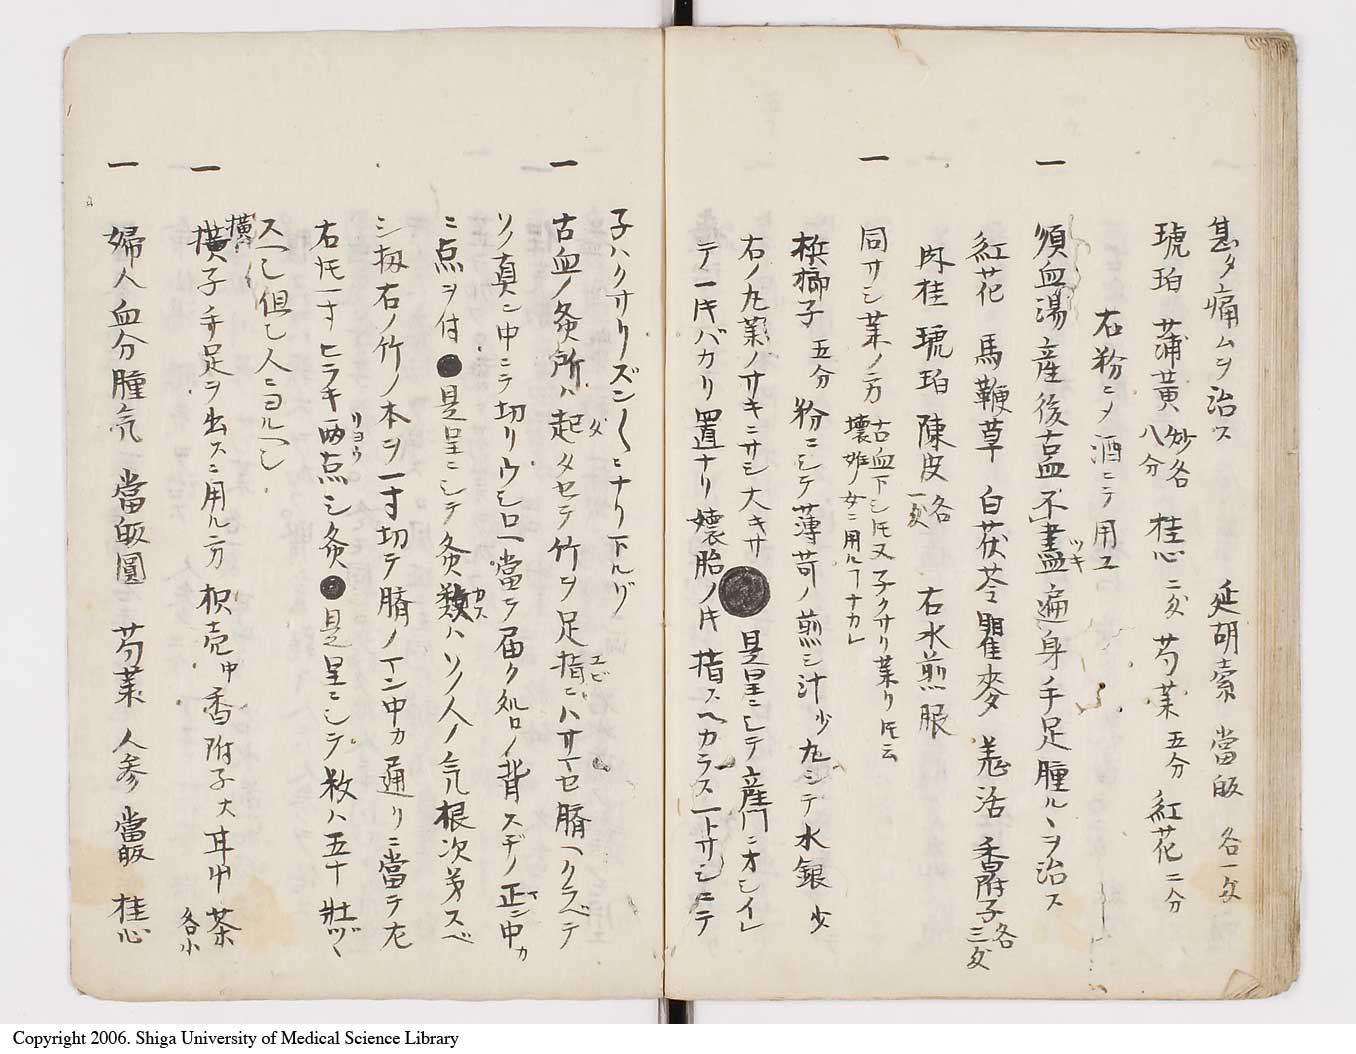 甚タ痛ムヲ治ス 延胡索 當皈 各一匁
琥珀 蒲黄 炒各八分 桂心 二匁 芍薬 五分 紅花 二分
右粉ニメ酒ニテ用ユ
一 順血湯 産後古血不盡遍身手足腫ルヽヲ治ス
ツキ
紅花 馬鞭草 白茯苓 瞿麥 羗活 香附子 各三匁
肉桂 琥珀 陳皮 各一匁 右水煎服
一 同サシ薬ノ方 古血下シ㐧又子クサリ薬リ㐧云
壊妊女ニ用ルヿナカレ
梹榔子 五分 粉ニシテ薄苛ノ煎シ汁少丸シテ水銀 少
右ノ丸薬ノサキニサシ大キサ●是呈ニシテ産門ニオシイレ
テ一时バカリ置ナリ 懐胎ノ时指スヘカラス一トサシニテ
子ハクサリズン〱ニナリ下ルゾ
一 古血ノ灸所ハ起タセテ竹ヲ足指ニハサマセ臍ヘクラベテ
タ
ユビ
ソノ真ン中ニテ切リウシロヘ當テ届ク処ロノ背スヂノ正ン中カ
ニ点ヲ付●是呈ニシテ灸数ハソノ人ノ气根次第スベ
カス
シ扨右ノ竹ノ本ヲ一寸切テ臍ノ下ン中カ通リニ當テ左
右㐧一寸ヒラキ両点シ灸●是呈ニシテ数ハ五十壯ヅヽ
リヨウ
スヘシ但シ人ニヨルヘシ
一 横子手足ヲ出スニ用ル方 枳壳中 香附子大 耳中 茶 各小
横
一 婦人血分腫气 當皈圓 芍薬 人参 當皈 桂心
Copyright 2006. Shiga University of Medical Science Library